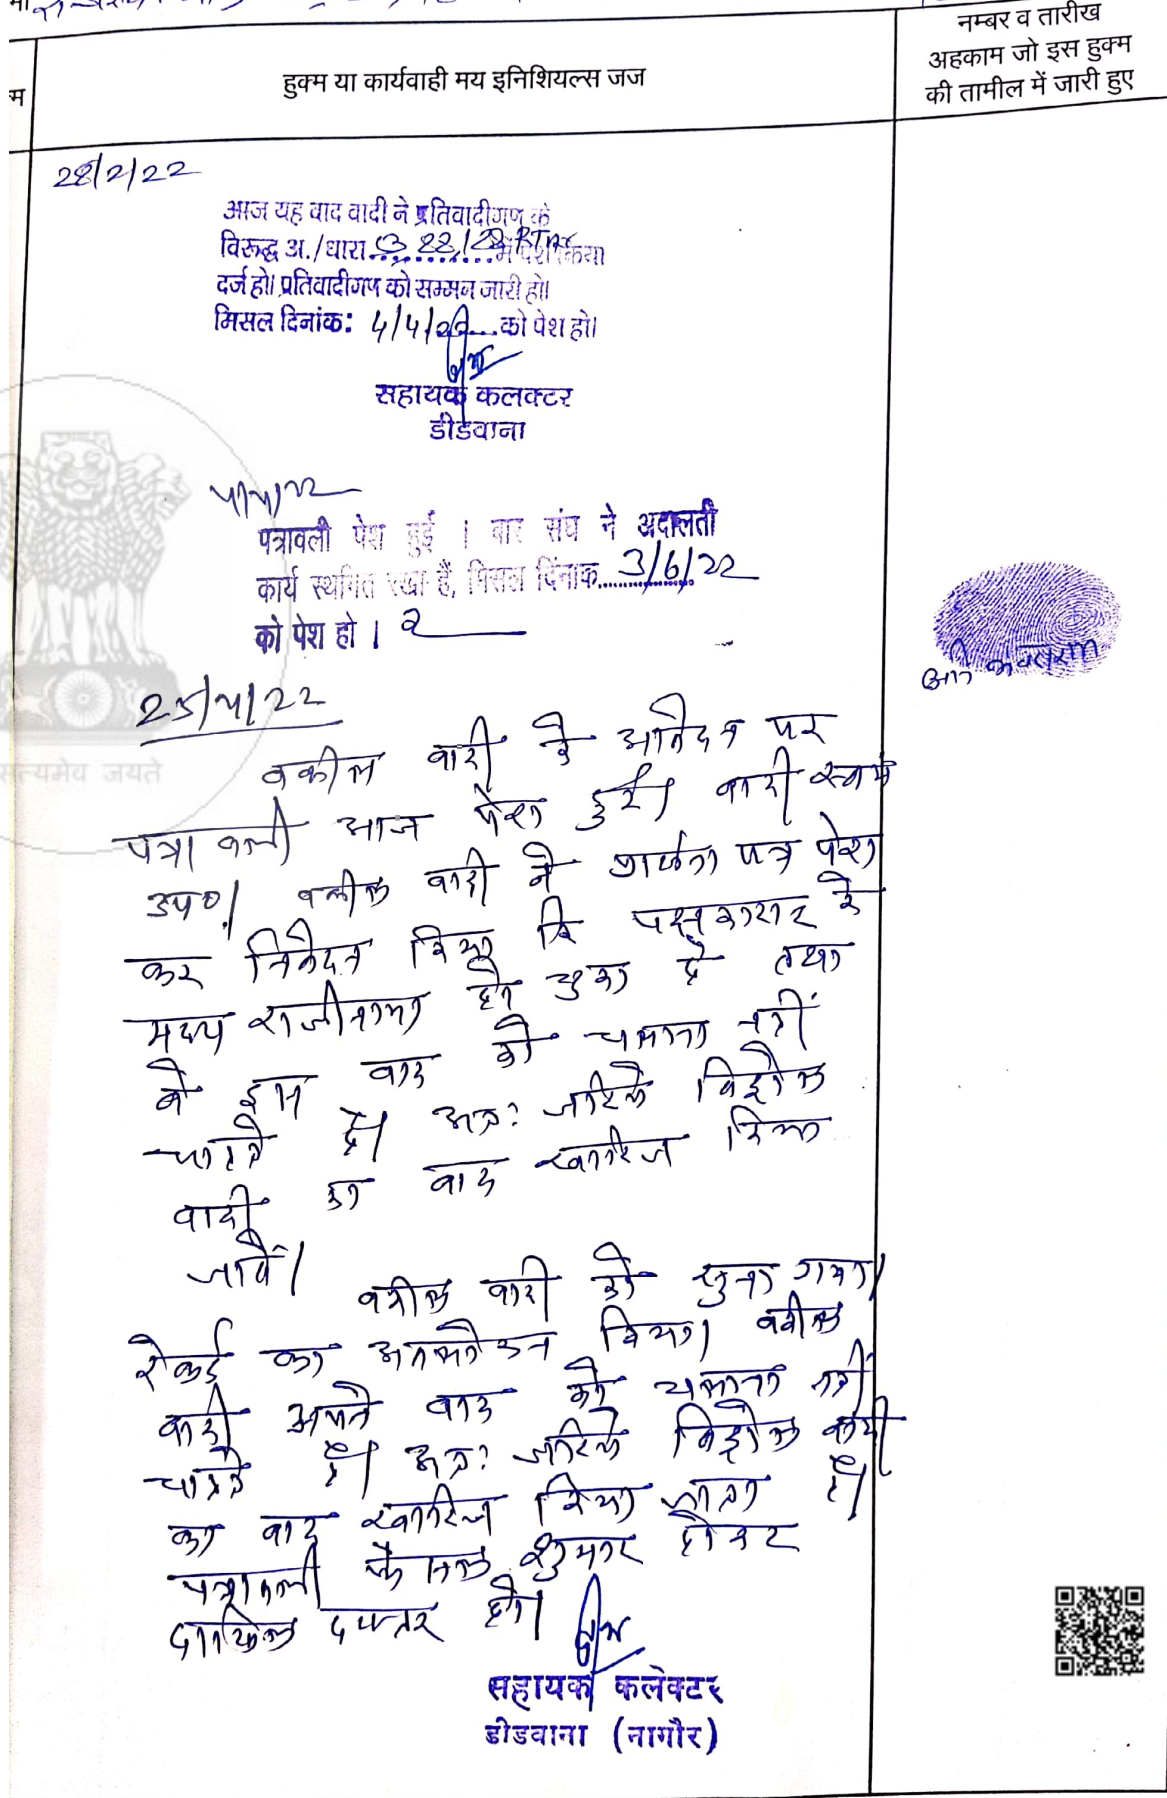 म
हुक्म या कार्यवाही मय इनिशियल्स जज
नम्बर व तारीख
अहकाम जो इस हुक्म
की तामील में जारी हुए
28/2/22
आज यह वाद वादी ने प्रतिवादीगण के
विरूद्ध अ./धारा
दर्ज हो। प्रतिवादीगण को सम्मन जारी हो।
मिसल दिनांक: 4/4/22 को पेश हो।
सहायक कलक्टर
डीडवाना
4/4/22
पत्रावली पेश हुई । बार संघ ने अदालती
कार्य स्थगित रखा हैं, मिसल दिंनाक 3/6/22
को पेश हो ।
25/4/22
वकील वादी के आवेदन पर
पत्रावली आज पेश हुई। वादी स्वयं
उप०। वकील वादी ने प्रार्थना पत्र पेश
कर निवेदन किया कि पक्षकारान के
मध्य राजीनामा हो चुका है तथा
वे इस वाद को चलाना नहीं
चाहते है। अतः जरिये विड्रोल
वादी का वाद खारिज किया
जावें।
वकील वादी को सुना गया।
रेकर्ड का अवलोकन किया। वकील
वादी अपने वाद को चलाना नहीं
चाहते है। अतः जरिये विड्रोल वादी
का वाद खारिज किया जाता है।
पत्रावली फैसल शुमार होकर
दाखिल दफ्तर हो।
सहायक कलेक्टर
डीडवाना (नागौर)
सत्यमेव जयते